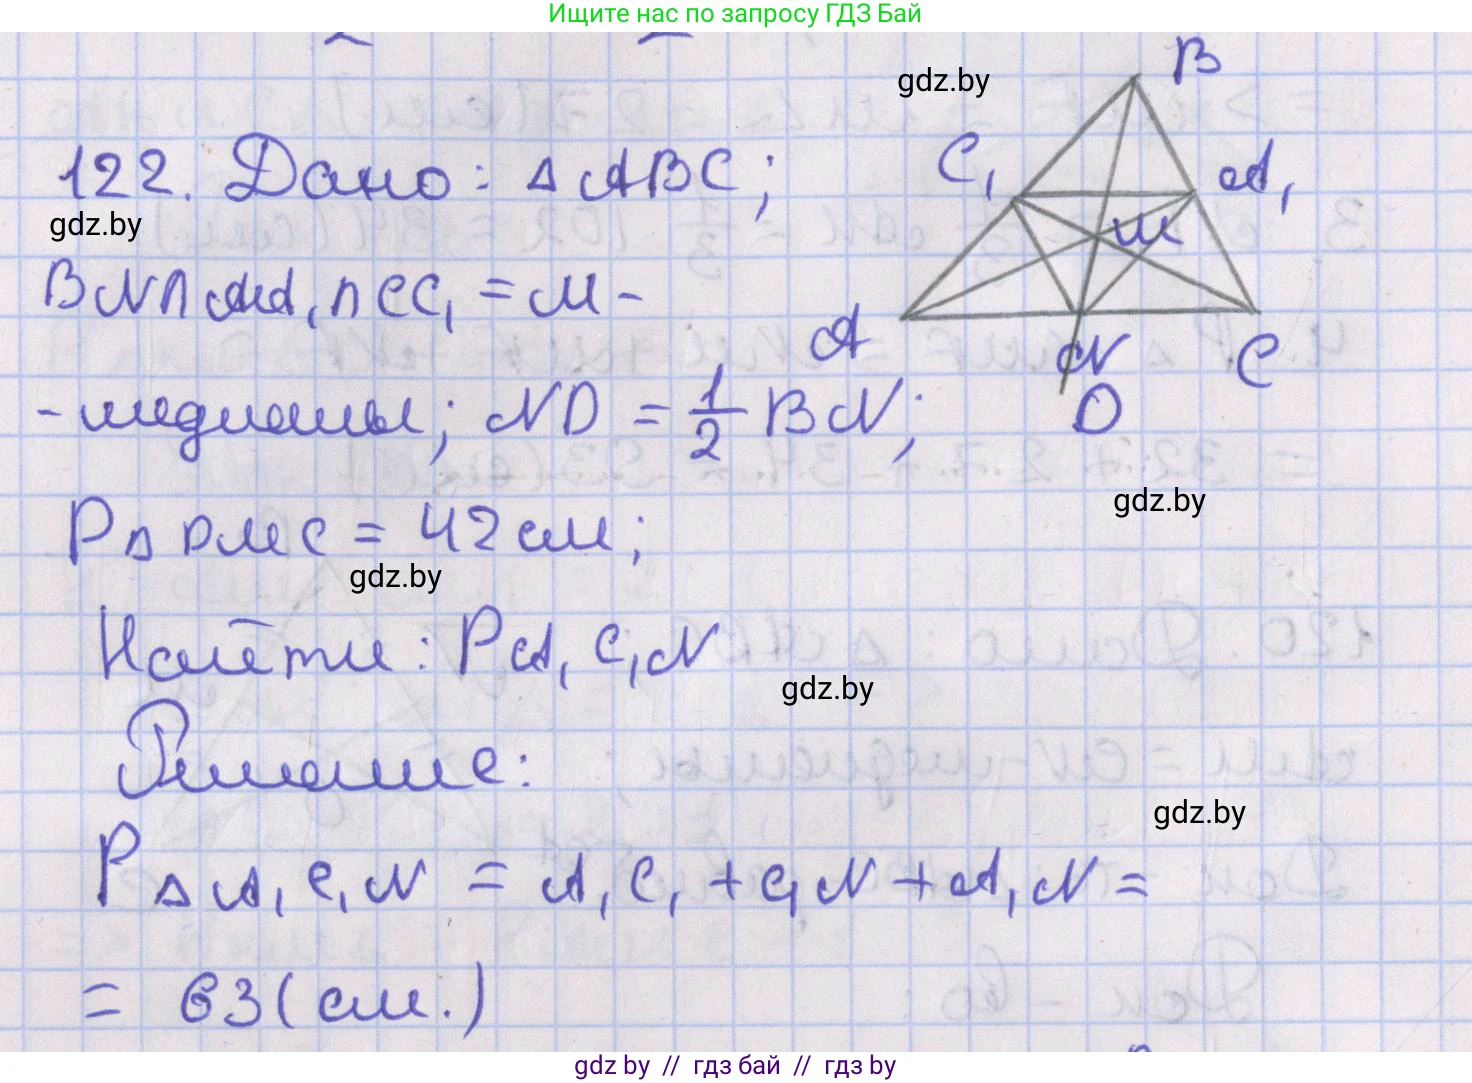 Ищите нас по запросу ГДЗ Бай
B
gdz.by
C₁
A₁
122. Дано: △ABC;
gdz.by
M
BN∩AA₁∩CC₁ = M -
A
N
C
- медианы; ND = 1/2 BN;
D
gdz.by
P△DMC = 42 см;
gdz.by
Найти: PA₁C₁N
gdz.by
Решение:
gdz.by
P△A₁C₁N = A₁C₁ + C₁N + A₁N =
= 63 (см.)
gdz.by // гдз бай // гдз by